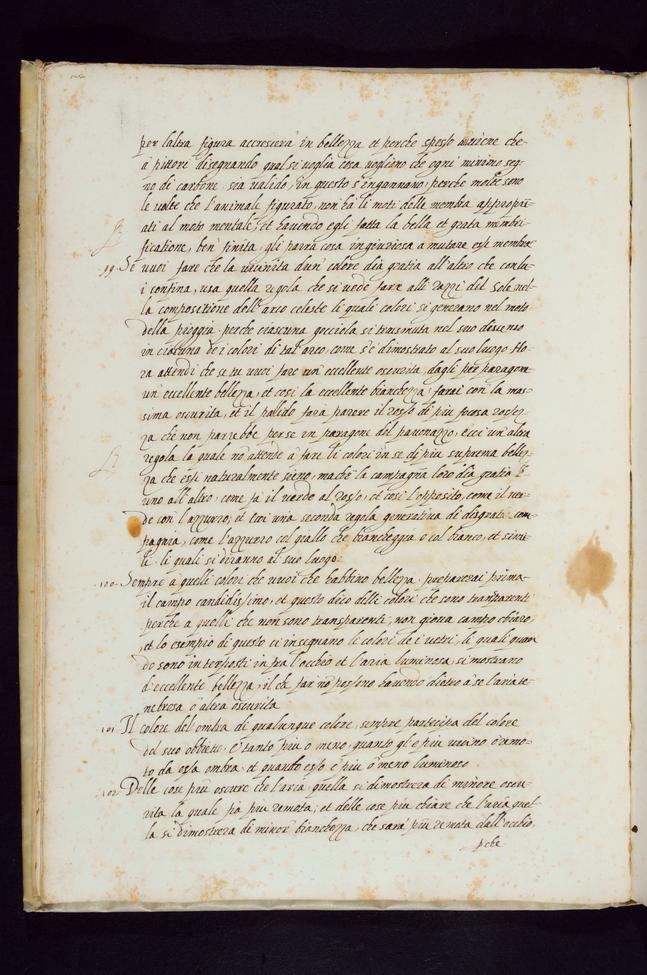 per l'altra figura accrescerà in bellezza et perche spesso aviene che
à pittori disegnando qual si voglia cosa vogliono che ogni minimo seg-
no di carbone sia valido, in questo s'ingannano, perche molte sono
le volte che l'animale figurato, non hà li moti delle membra appropri-
ati al moto mentale, et havendo egli fatta la bella et grata membri-
ficatione, ben finita, gli parrà cosa ingiuriosa a mutare esse membra
99. Se vuoi fare che la vicinità d'un colore dia gratia all'altro che con lu-
i confina, usa quella regola che si vede fare alli razzi del sole nel-
la compositione dell'arco celeste li quali colori si generano nel moto
della pioggia. perche ciascuna gocciola si trasmuta nel suo discenso
in ciascuna de i colori di tal arco, come s'è dimostrato al suo luogo Ho-
ra attendi che se tu vuoi fare un'eccellente oscurità, dagli per paragone
un'eccellente bellezza, et così la eccellente bianchezza farai con la mas-
sima oscurità, et il pallido farà parere il rosso di più focosa rossez-
za che non parrebbe per se in paragone del paonazzo, ecci un'altra
regola la quale no attende à fare li colori in se di più suprema bellez-
za che essi naturalmente sieno, mache la compagnia loro dia gratia l'
uno all'altro, come fà il verde al rosso, et così l'opposito, come il ver-
de con l'azzurro, et ecci una seconda regola generativa di disgratiata com-
pagnia, come l'azzurro col giallo che biancheggia ò col bianco, et simi-
li. li quali si diranno al suo luogo.
100. Sempre a quelli colori che vuoi che habbino bellezza preparerai prima
il campo candidissimo, et questo dico delli colori che sono transparenti
perche a quelli che non sono transparenti, non giova campo chiaro,
et lo esempio di questo ci insegnano le colori de i vetri, li quali quan
do sono interposti in fra l'occhio et l'aria luminosa, si mostrano
d'eccellente bellezza, il ch far nò possono havendo dietro à se l'aria te-
nebrosa ò altra oscurità
101. Il colore del ombra di qualunque colore, sempre participa del colore
del suo obbietto, è tanto più o meno, quanto gl'è più vicino ò remo-
to da essa ombra, et quando esso è più ò meno luminoso.
102. Delle cose più oscure che l'aria, quella si dimostrera di minore oscu-
rità la quale fia più remota, et delle cose più chiare che l'aria quel-
la si dimostrera di minor bianchezza, che sarà più remota dall'occhio,
pche